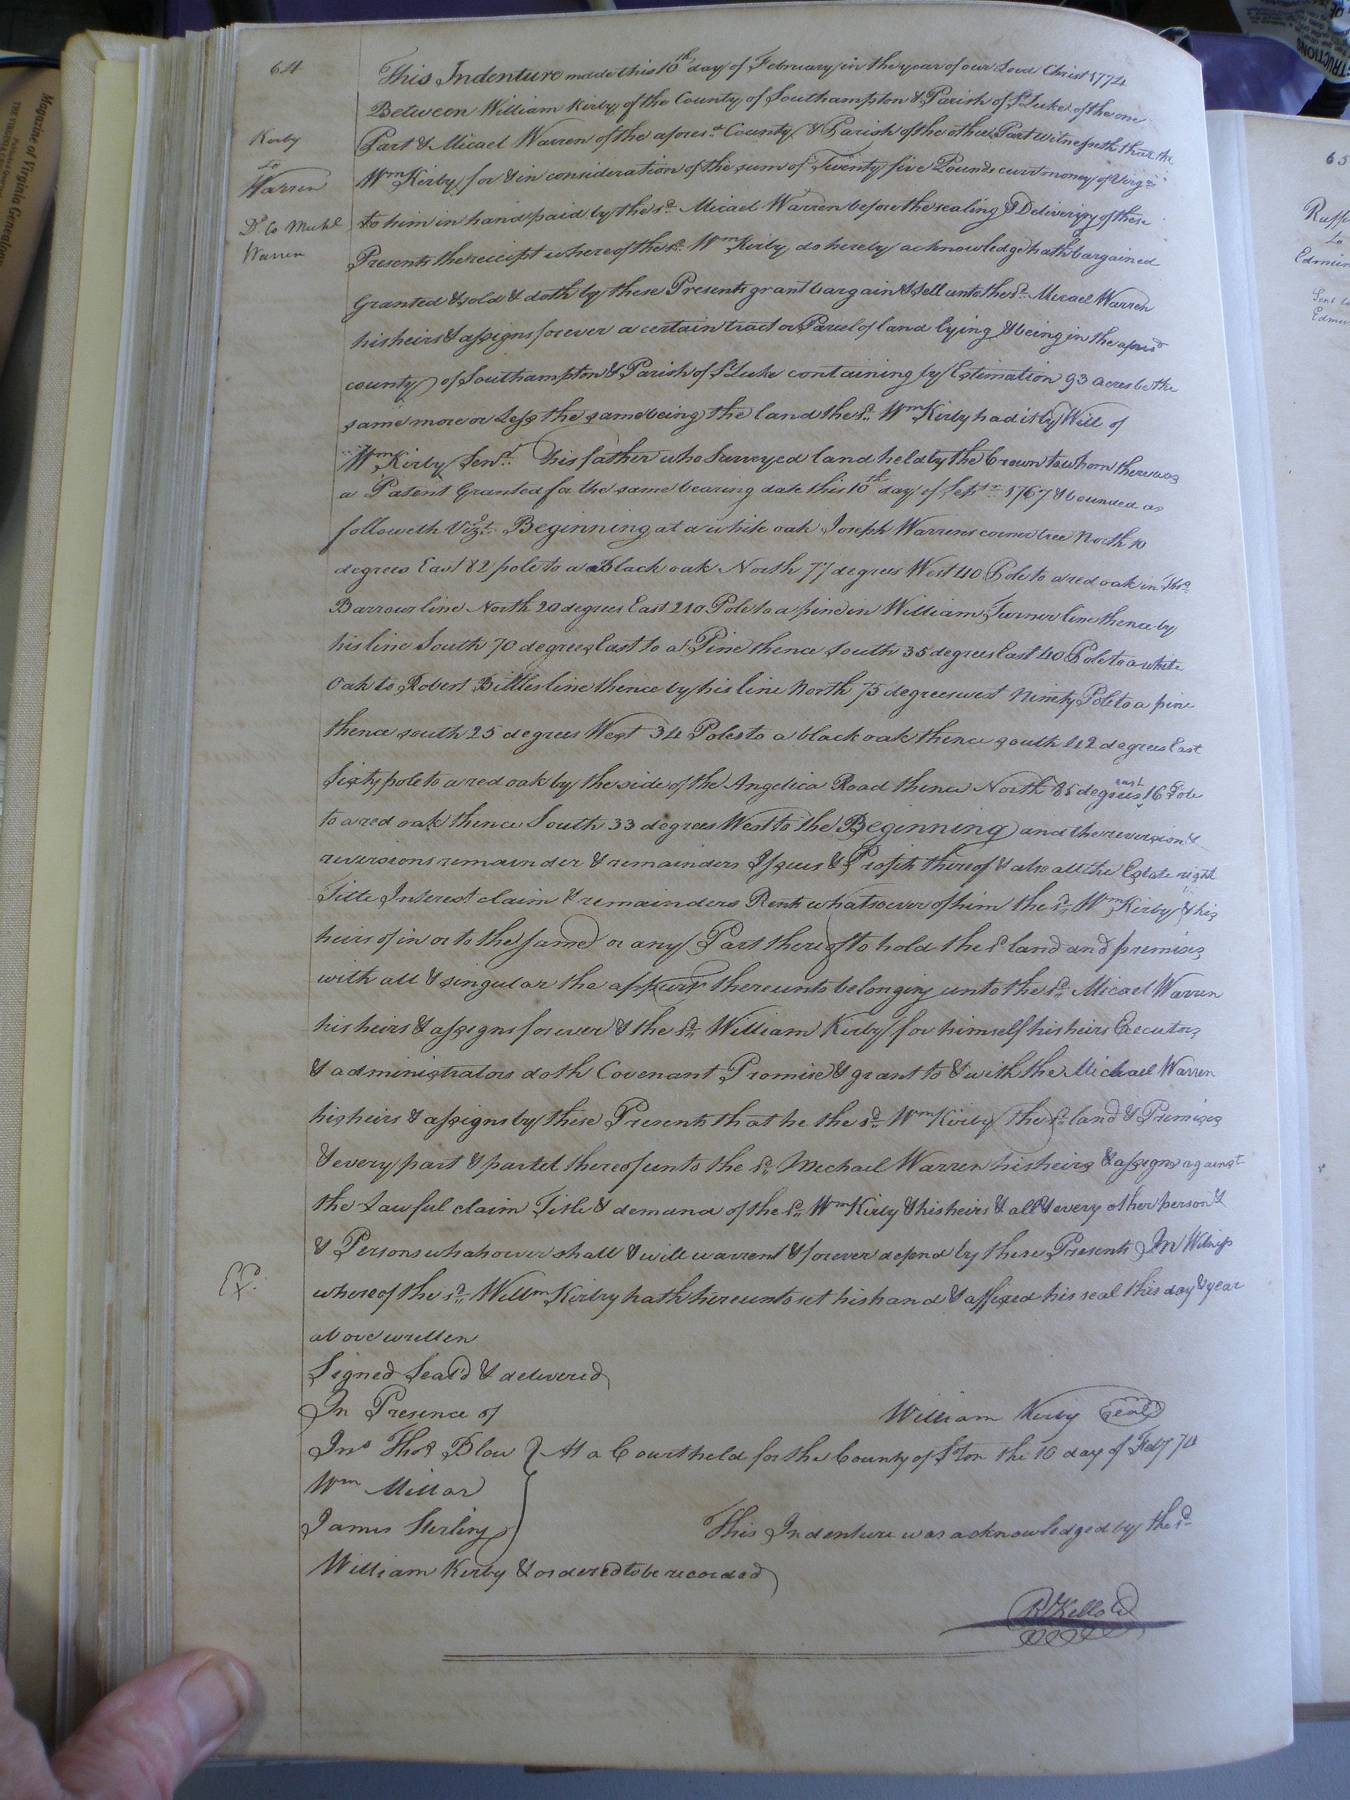 64
This Indenture made this 10th day of February in the year of our Lord Christ 1774
Between William Kirby of the County of Southampton & Parish of St Luke of the one
Kirby
to
Warren
Part & Micael Warren of the aforesd County & Parish of the other Part witnesseth that the
Wm Kirby for & in consideration of the sum of Twenty five Pounds curr money of Virga
Dd to Michl
Warren
to him in hand paid by the sd Micael Warren before the sealing & Delivery of these
Presents the receipt whereof the sd Wm Kirby do hereby acknowledge hath bargained
Granted & sold & doth by these Presents grant bargain & sell unto the sd Micael Warren
his heirs & assigns forever a certain tract or Parcel of land lying & being in the aforesd
county of Southampton & Parish of St Luke containing by Estimation 93 acres be the
same more or Less the same being the land the sd Wm Kirby had it by Will of
Wm Kirby Senr his father who Surveyed land held by the Crown to whom there was
a Patent Granted for the same bearing date this 10th day of Septr 1767 & bounded as
followeth Vizt Beginning at a white oak Joseph Warrens corner tree North 10
degrees East 82 pole to a Black oak North 77 degrees West 40 Pole to a red oak in Thos
Barrows line North 20 degrees East 210 Pole to a pine in William Turner line thence by
his line South 70 degrees East to a Pine thence south 35 degrees East 40 Pole to a white
Oak to Robert Bittles line thence by his line North 75 degrees west Ninety Pole to a pine
thence south 25 degrees West 34 Poles to a black oak thence south 42 degrees East
Sixty pole to a red oak by the side of the Angelica Road thence North 85 degrees east 16 Pole
to a red oak thence South 33 degrees West to the Beginning and the reversion &
reversions remainder & remainders Issues & Profits thereof & also all the Estate right
Title Interest claim & remainders Rents whatsoever of him the sd Wm Kirby & his
heirs of in or to the same or any Part thereof to hold the sd land and premises
with all & singular the appurt thereunto belonging unto the sd Micael Warren
his heirs & assigns forever & the sd William Kirby for himself his heirs Executors
& administrators doth Covenant Promise & grant to & with the Michael Warren
his heirs & assigns by these Presents that he the sd Wm Kirby the sd land & Premises
& every part & partel thereof unto the sd Mechael Warren his heirs & assigns against
the Lawful claim Title & demand of the sd Wm Kirby & his heirs & all & every other person &
& Persons whatsower shall & will warrent & forever defend by these Presents In Witness
Ex:
whereof the sd Willm Kirby hath hereunto set his hand & affixed his seal this day & year
above written
Signed Seal'd & delivered
In Presence of
William Kirby Seal
Jno Thos Blow } At a Court held for the County of Ston the 10 day of Feby 74
Wm Millar
James Sterling
This Indenture was acknowledged by the sd
William Kirby & ordered to be recorded
R Kello
65
to
Magazine of Virginia Genealogy